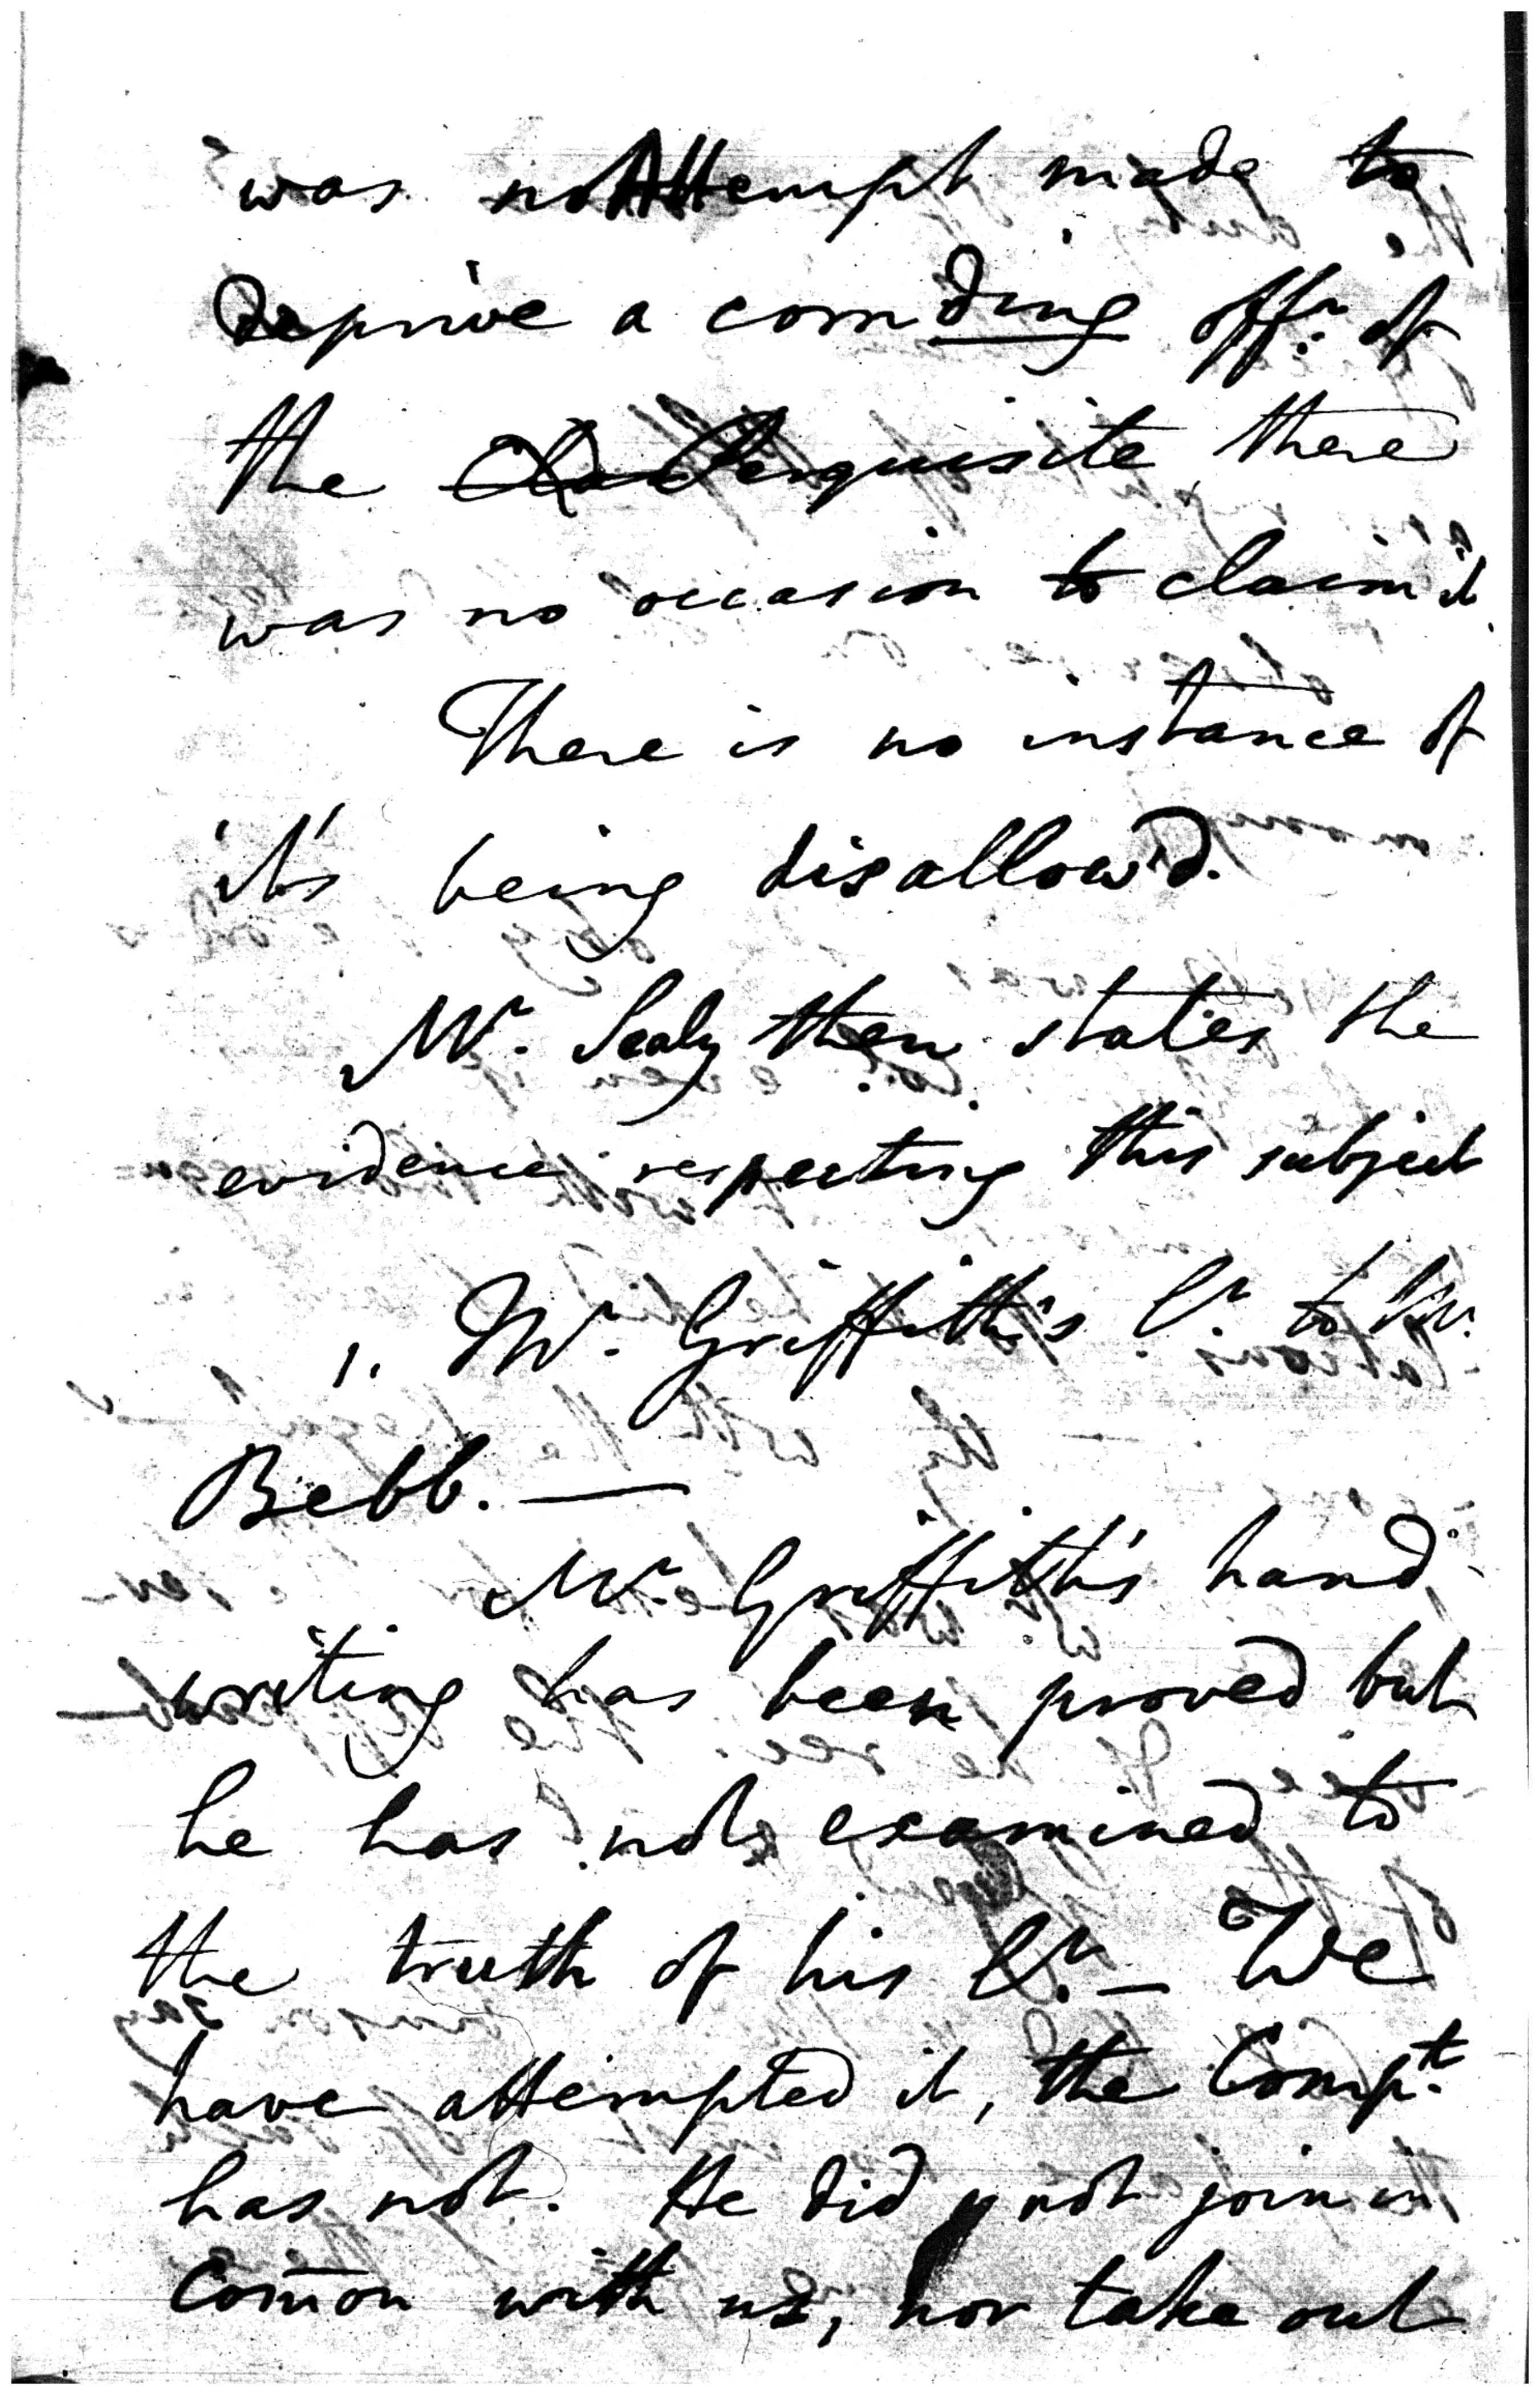 was no Attempt made to
Deprive a comding offr. of
the Perquisite there
was no occasion to claim it.
There is no instance of
it's being disallow'd.
Mr. Sealy then states the
evidence respecting this subject
1. Mr. Griffith's lr. to Mr.
Bebb. —
Mr. Griffith's hand
writing has been proved but
he has not examined to
the truth of his lr. — We
have attempted it, the Compt.
has not. He did not join in
Com̄on with us, nor take out